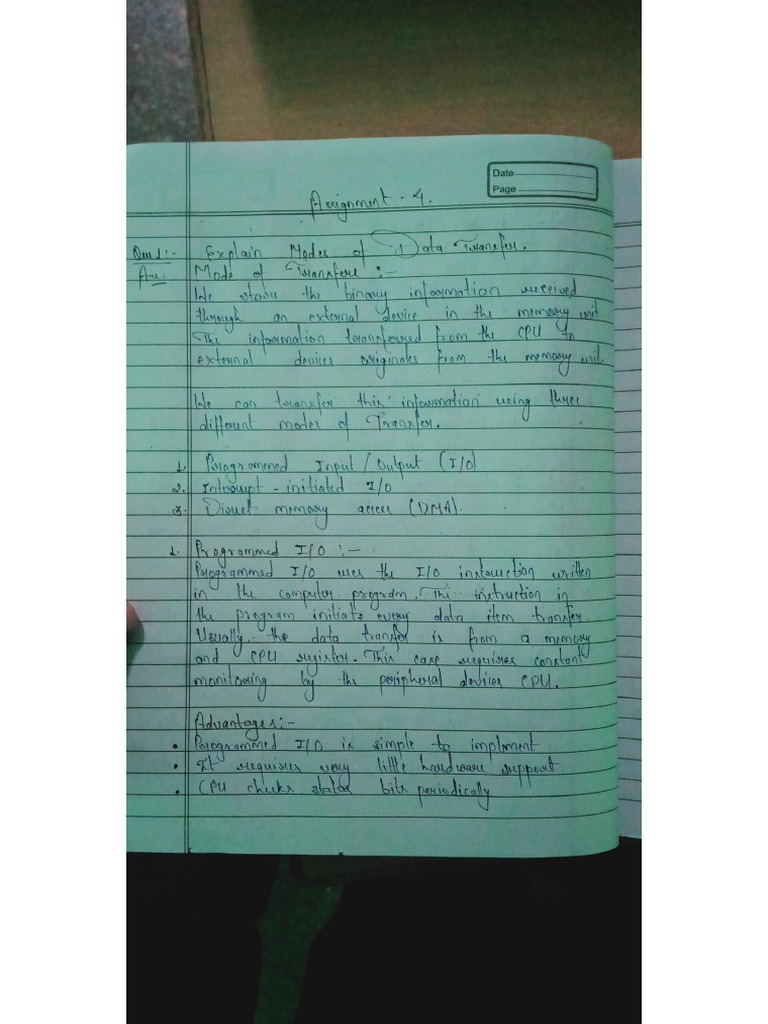 Date
Page
Assignment - 4.
Ques 1:- Explain Modes of Data Transfer.
Ans. Mode of Transfere :-
We store the binary information received
through an external device in the memory unit.
The information transferred from the CPU to
external devices originates from the memory unit.
We can transfer this information using three
different modes of Transfer.
1. Programmed Input / Output (I/O)
2. Interrupt - initiated I/O
3. Direct memory access (DMA).
1. Programmed I/O :-
Programmed I/O uses the I/O instruction written
in the computer program. The instruction in
the program initiate every data item transfer.
Usually, the data transfer is from a memory
and CPU register. This case requires constant
monitoring by the peripheral devices CPU.
Advantages:-
• Programmed I/O is simple to implment
• It requires very little hardware support
• CPU checks status bits periodically